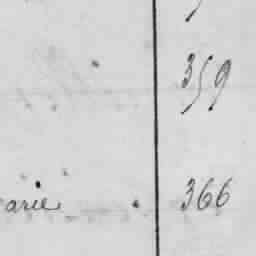 359
arie 366